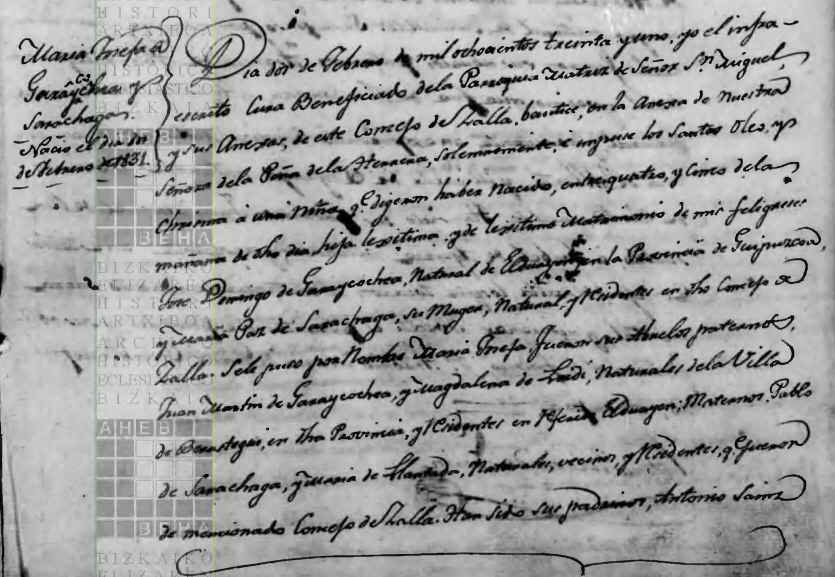 Maria Josefa de
Garaycochea y
Sarachaga.
Nacio el dia dos
de Febrero de 1831.
Dia dos de Febrero de mil ochocientos treinta y uno, yo el infra-
escrito Cura Beneficiado de la Parroquia Matriz de Señor Sn. Miguel,
y sus Anexas, de este Concejo de Zalla, bautice, en la Anexa de Nuestra
Señora de la Peña de la Herrera, solemnemente, e impuse los Santos Oleo, y
Chrisma á una Niña, qe. digeron haber Nacido, entre quatro, y Cinco de la
mañana de dho dia, hija lexitima, y de lexitimo Matrimonio de mis feligreses
José Domingo de Garaycochea, Natural de Elduayen, en la Provincia de Guipuzcoa,
y Maria Paz de Sarachaga, su Muger, Natural, y Residentes en dho Concejo de
Zalla. Se le puso por Nombre Maria Josefa. Fueron sus Abuelos paternos,
Juan Martin de Garaycochea, y Magdalena de Naturales de la Villa
de Berastegui, en dha Provincia, y Residentes en Elduayen; Maternos, Pablo
de Sarachaga, y Maria de Llantada, Naturales, vecinos, y Residentes, qe. fueron
de mencionado Concejo de Zalla. Han sido sus padrinos, Antonio Sainz
HISTORI
BIZKAIA
BEHA
BIZKAIKO
ELIZAREN
HISTORI
ARTXIBOA
ARCHIVO
HISTORICO
ECLESIASTICO
BIZKAIA
AHEB
BEHA
BIZKAIKO